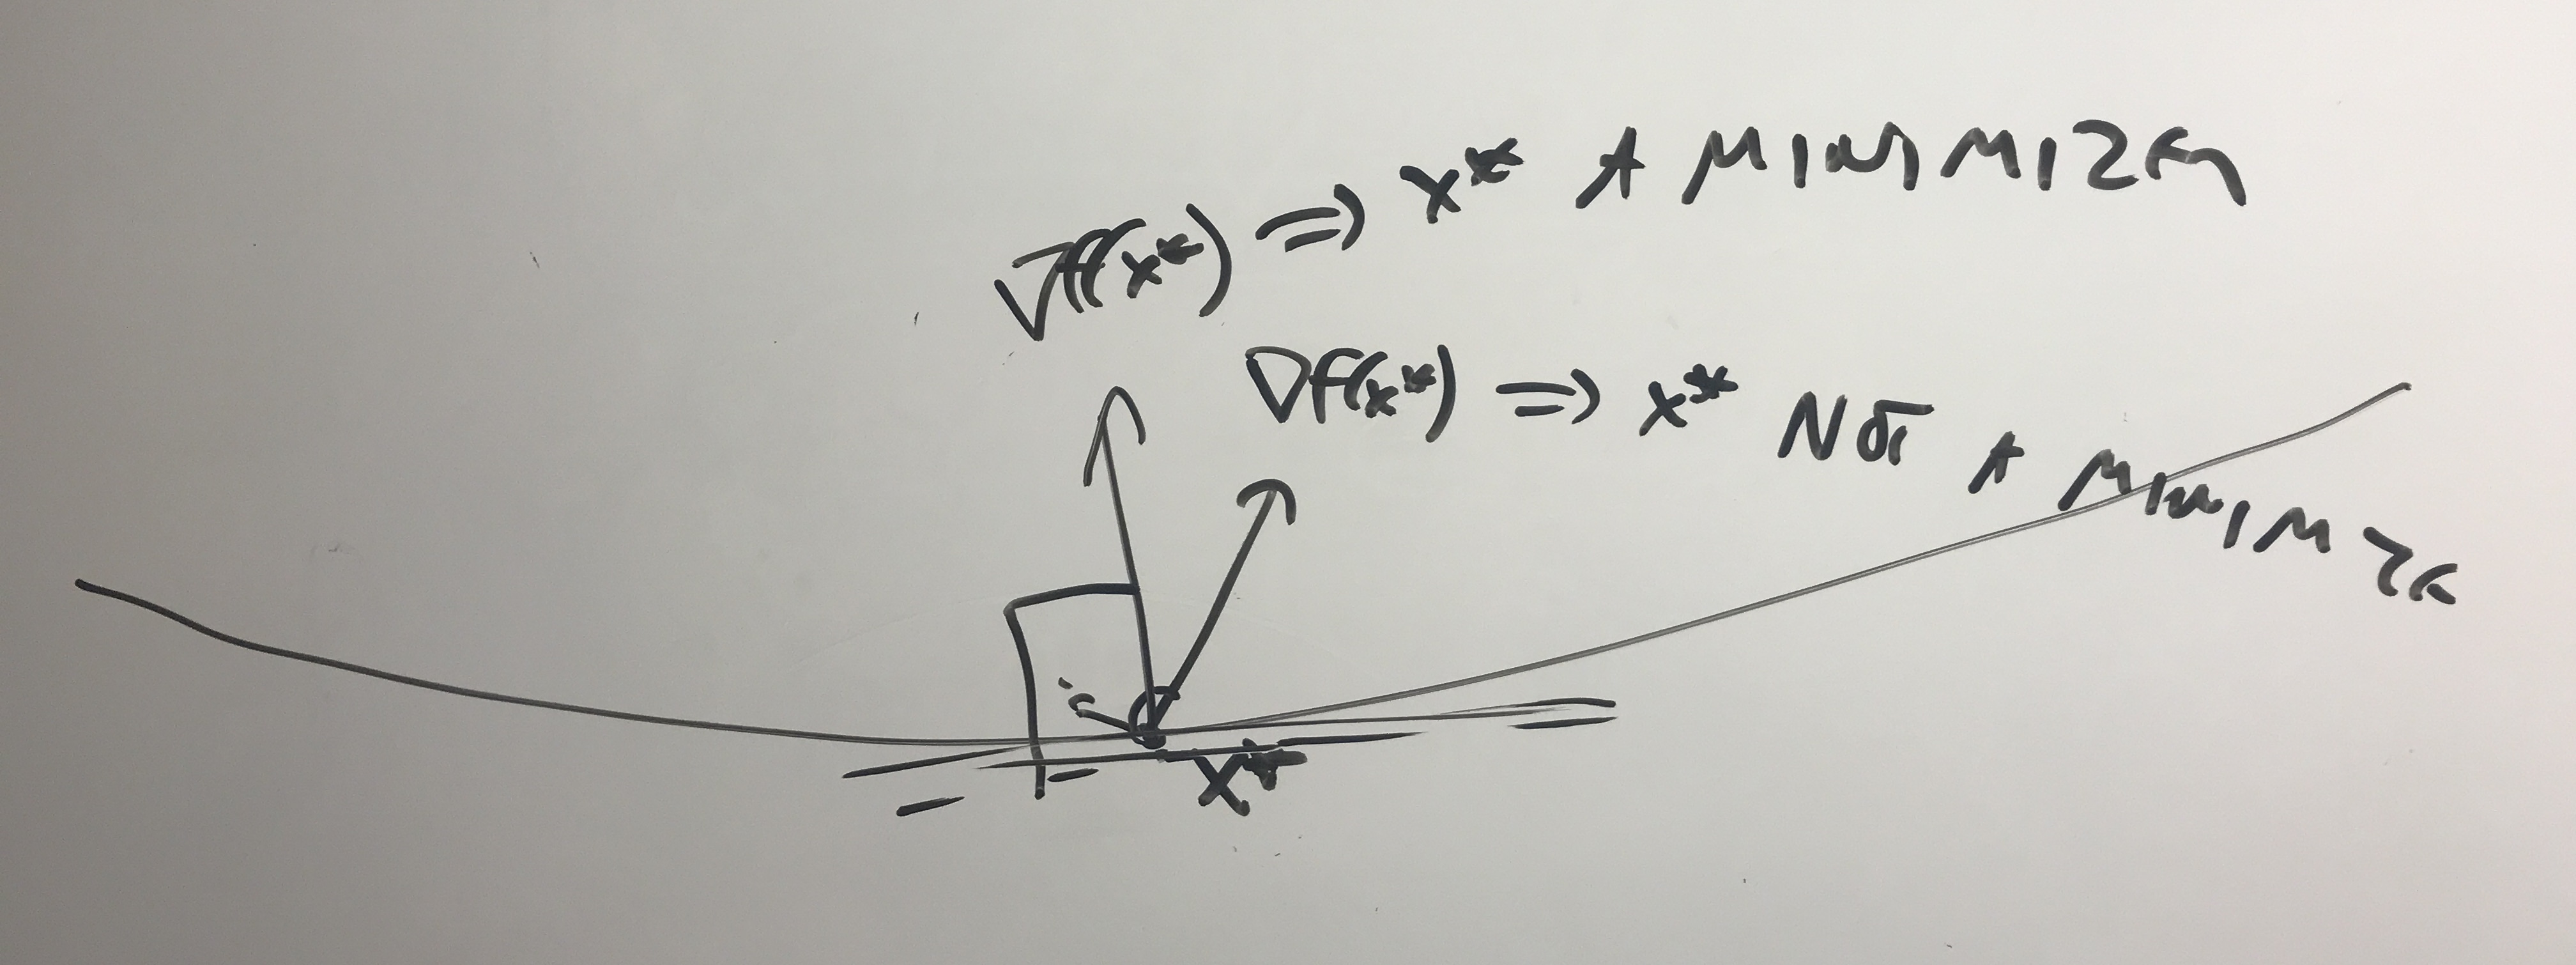 ∇f(x*) => x* A MINIMIZER
∇f(x*) => x* NOT A MINIMIZER
x*